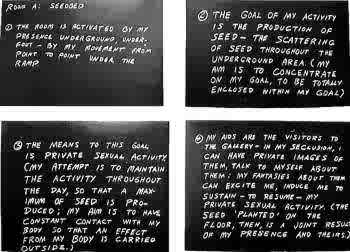 ROOM A: SEEDBED
① THE ROOM IS ACTIVATED BY MY
PRESENCE UNDERGROUND, UNDER-
FOOT - BY MY MOVEMENT FROM
POINT TO POINT UNDER THE
RAMP.
② THE GOAL OF MY ACTIVITY
IS THE PRODUCTION OF
SEED - THE SCATTERING
OF SEED THROUGHOUT THE
UNDERGROUND AREA. (MY
AIM IS TO CONCENTRATE
ON MY GOAL, TO BE TOTALLY
ENCLOSED WITHIN MY GOAL)
③ THE MEANS TO THIS GOAL
IS PRIVATE SEXUAL ACTIVITY.
(MY ATTEMPT IS TO MAINTAIN
THE ACTIVITY THROUGHOUT
THE DAY, SO THAT A MAX-
IMUM OF SEED IS PRO-
DUCED; MY AIM IS TO HAVE
CONSTANT CONTACT WITH MY
BODY SO THAT AN EFFECT
FROM MY BODY IS CARRIED
OUTSIDE.)
MY AIDS ARE THE VISITORS TO
THE GALLERY - IN MY SECLUSION, I
CAN HAVE PRIVATE IMAGES OF
THEM, TALK TO MYSELF ABOUT
THEM: MY FANTASIES ABOUT THEM
CAN EXCITE ME, INDUCE ME TO
SUSTAIN - TO RESUME - MY
PRIVATE SEXUAL ACTIVITY. (THE
SEED 'PLANTED' ON THE
FLOOR, THEN, IS A JOINT RESULT
OF MY PRESENCE AND THEIRS)